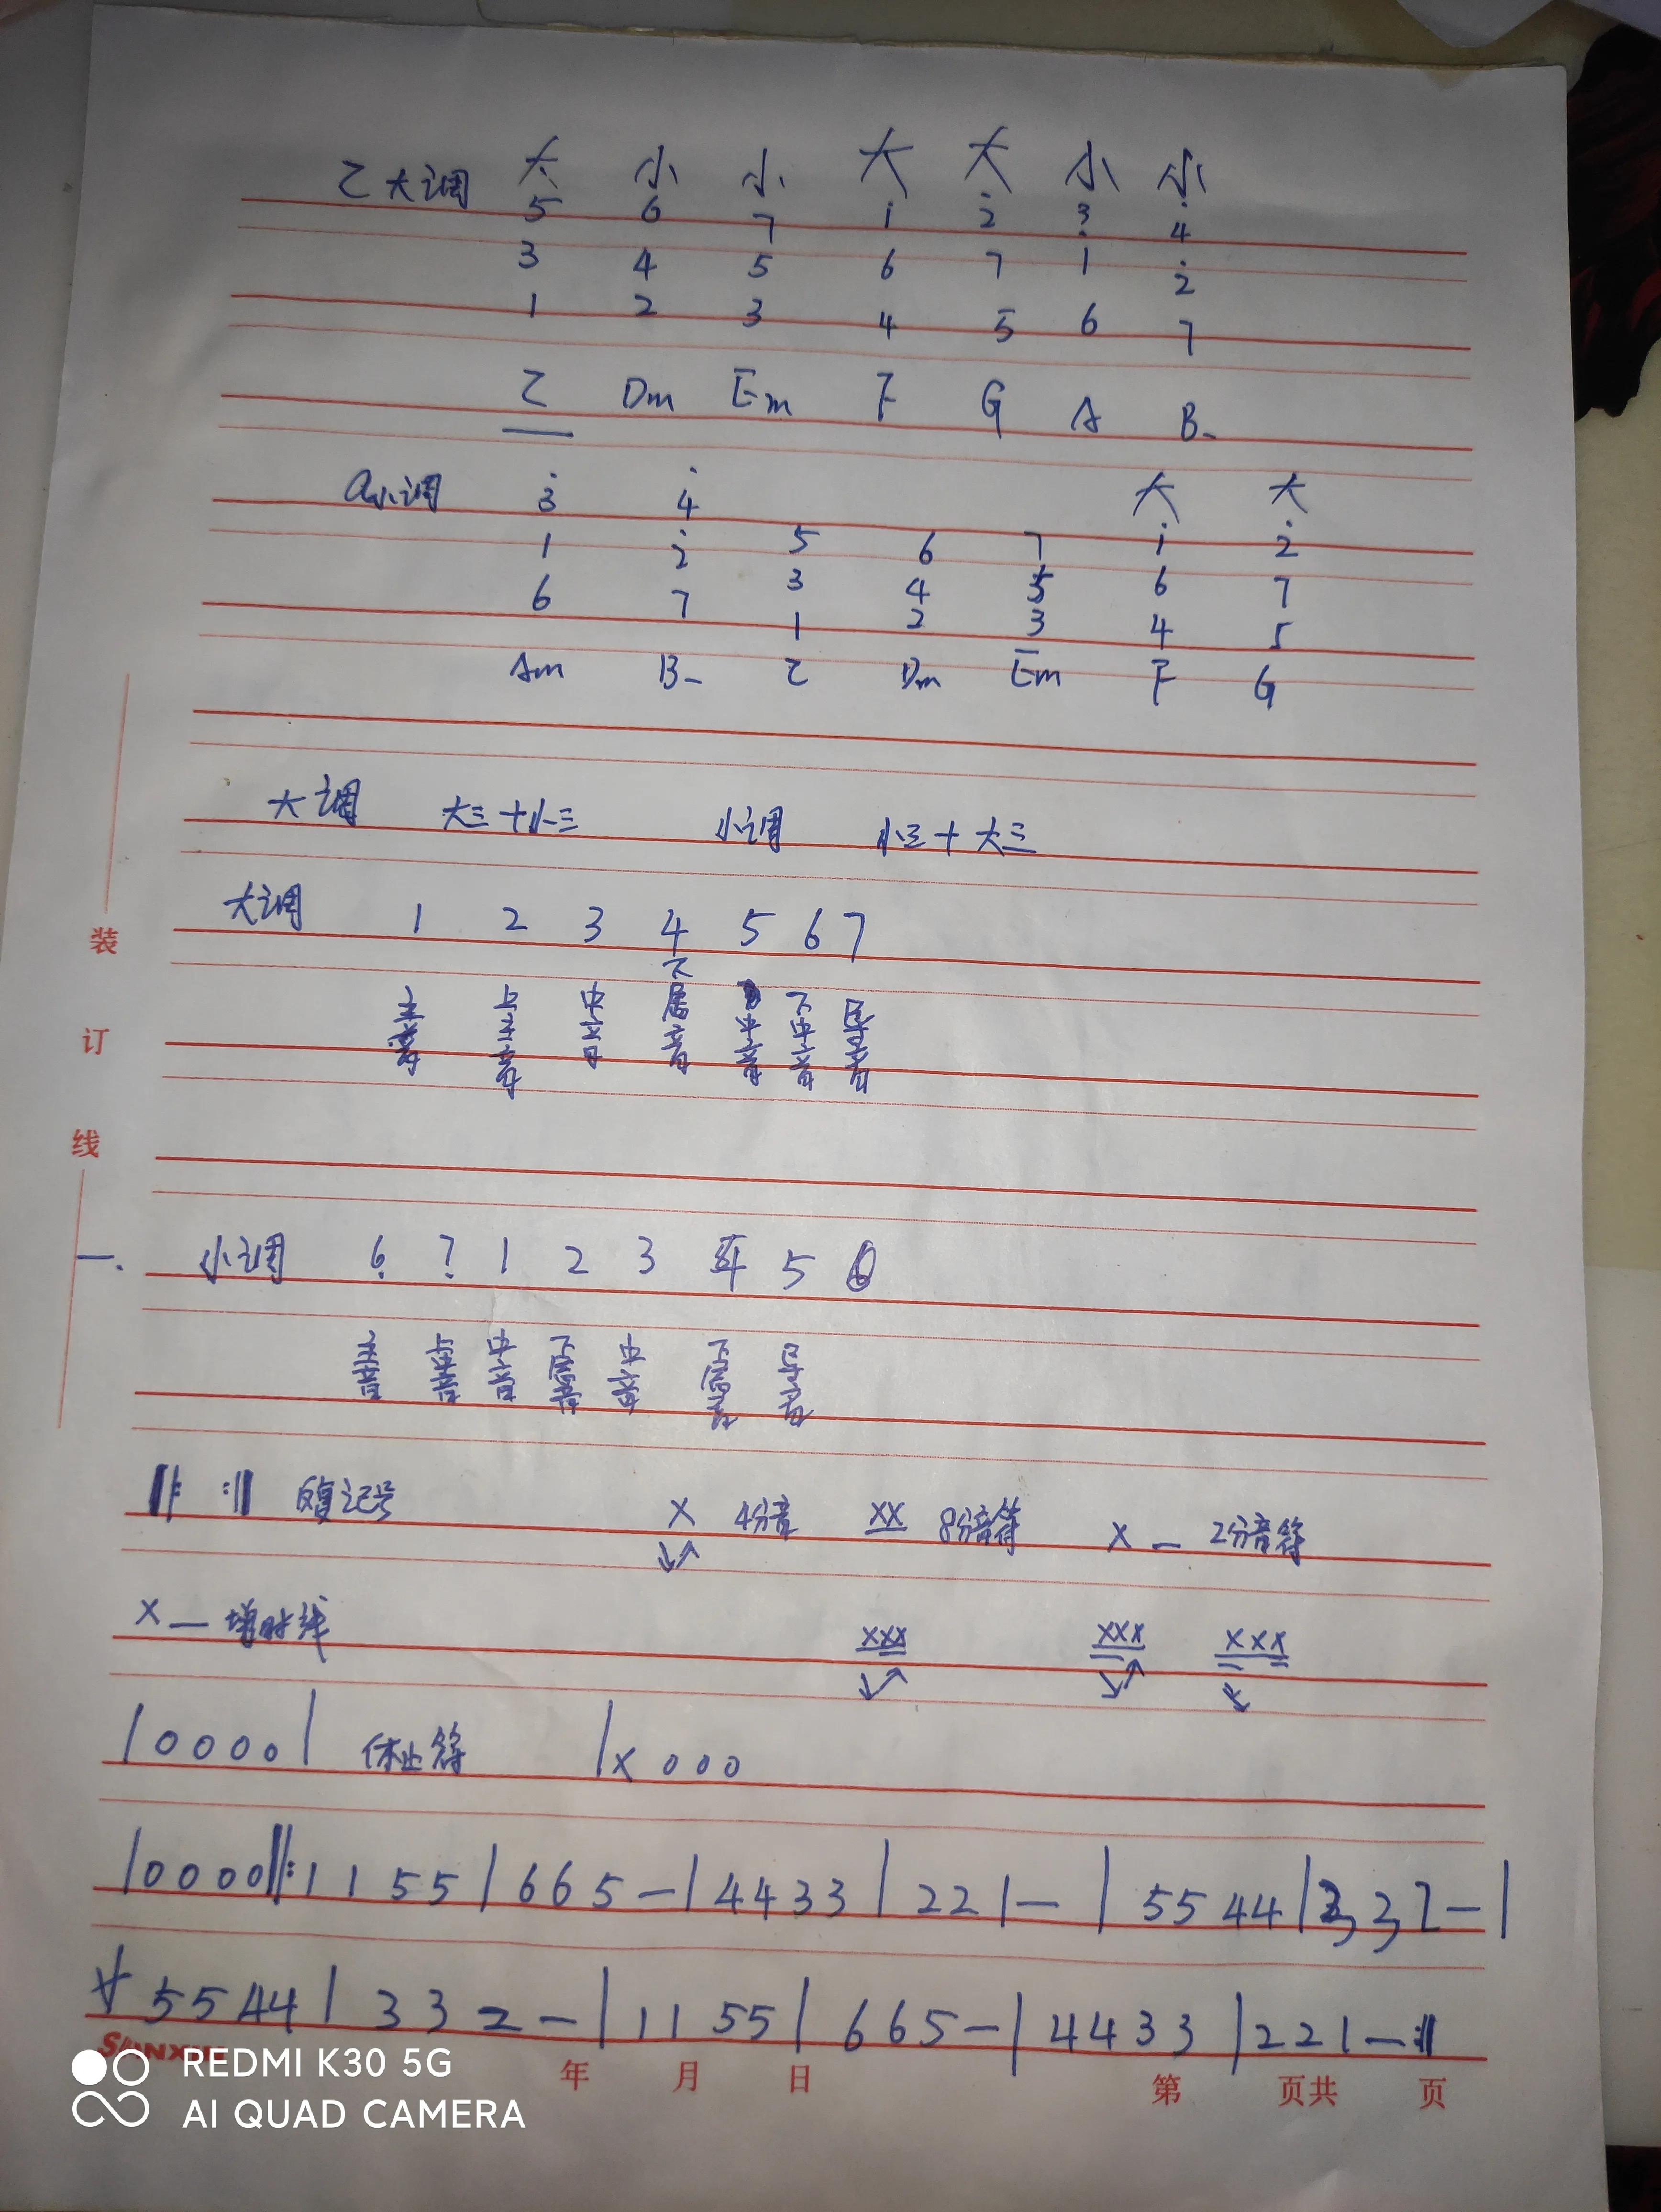 C大调 大 小 小 大 大 小 小
5 6 7 i 2̇ 3̇ 4̇
3 4 5 6 7 i 2̇
1 2 3 4 5 6 7
C Dm Em F G A B-
a小调 3̇ 4̇ 大 大
1 2̇ 5 6 7 i 2̇
6 7 3 4 5 6 7
1 2 3 4 5
Am B- C Dm Em F G
大调 大三+小三 小调 小三+大三
大调 1 2 3 4 5 6 7
主音 上主音 中音 下属音 中音 下中音 导音
一. 小调 6̣ 7̣ 1 2 3 4 5
主音 上主音 中音 下属音 中音 导音
‖: :‖ 反复记号 X 4分音 XX 8分音符 X — 2分音符
↓↗
X — 增时线 XXX XXX XXX
|0000| 休止符 |X000
|0000‖:1155|665-|4433|221-|5544|332-|
5544|332-|1155|665-|4433|221-:‖
装
订
线
年 月 日 第 页共 页
REDMI K30 5G
AI QUAD CAMERA